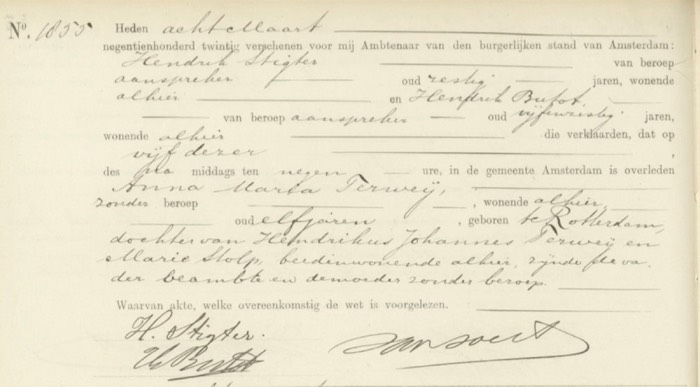 No. 1855 Heden acht Maart
negentienhonderd twintig verschenen voor mij Ambtenaar van den burgerlijken stand van Amsterdam:
Hendrik Stigter van beroep
aanspreker oud zestig jaren, wonende
alhier en Hendrik Butot,
van beroep aanspreker oud vijfenzestig jaren,
wonende alhier die verklaarden, dat op
vijf dezer,
des na middags ten negen ure, in de gemeente Amsterdam is overleden
Anna Maria Terweij,
zonder beroep, wonende alhier,
oud elf jaren, geboren te Rotterdam,
dochter van Hendrikus Johannes Terweij en
Marie Stolp, beiden wonende alhier, zijnde de va-
der beambte en de moeder zonder beroep.
Waarvan akte, welke overeenkomstig de wet is voorgelezen.
H. Stigter.
H Butot